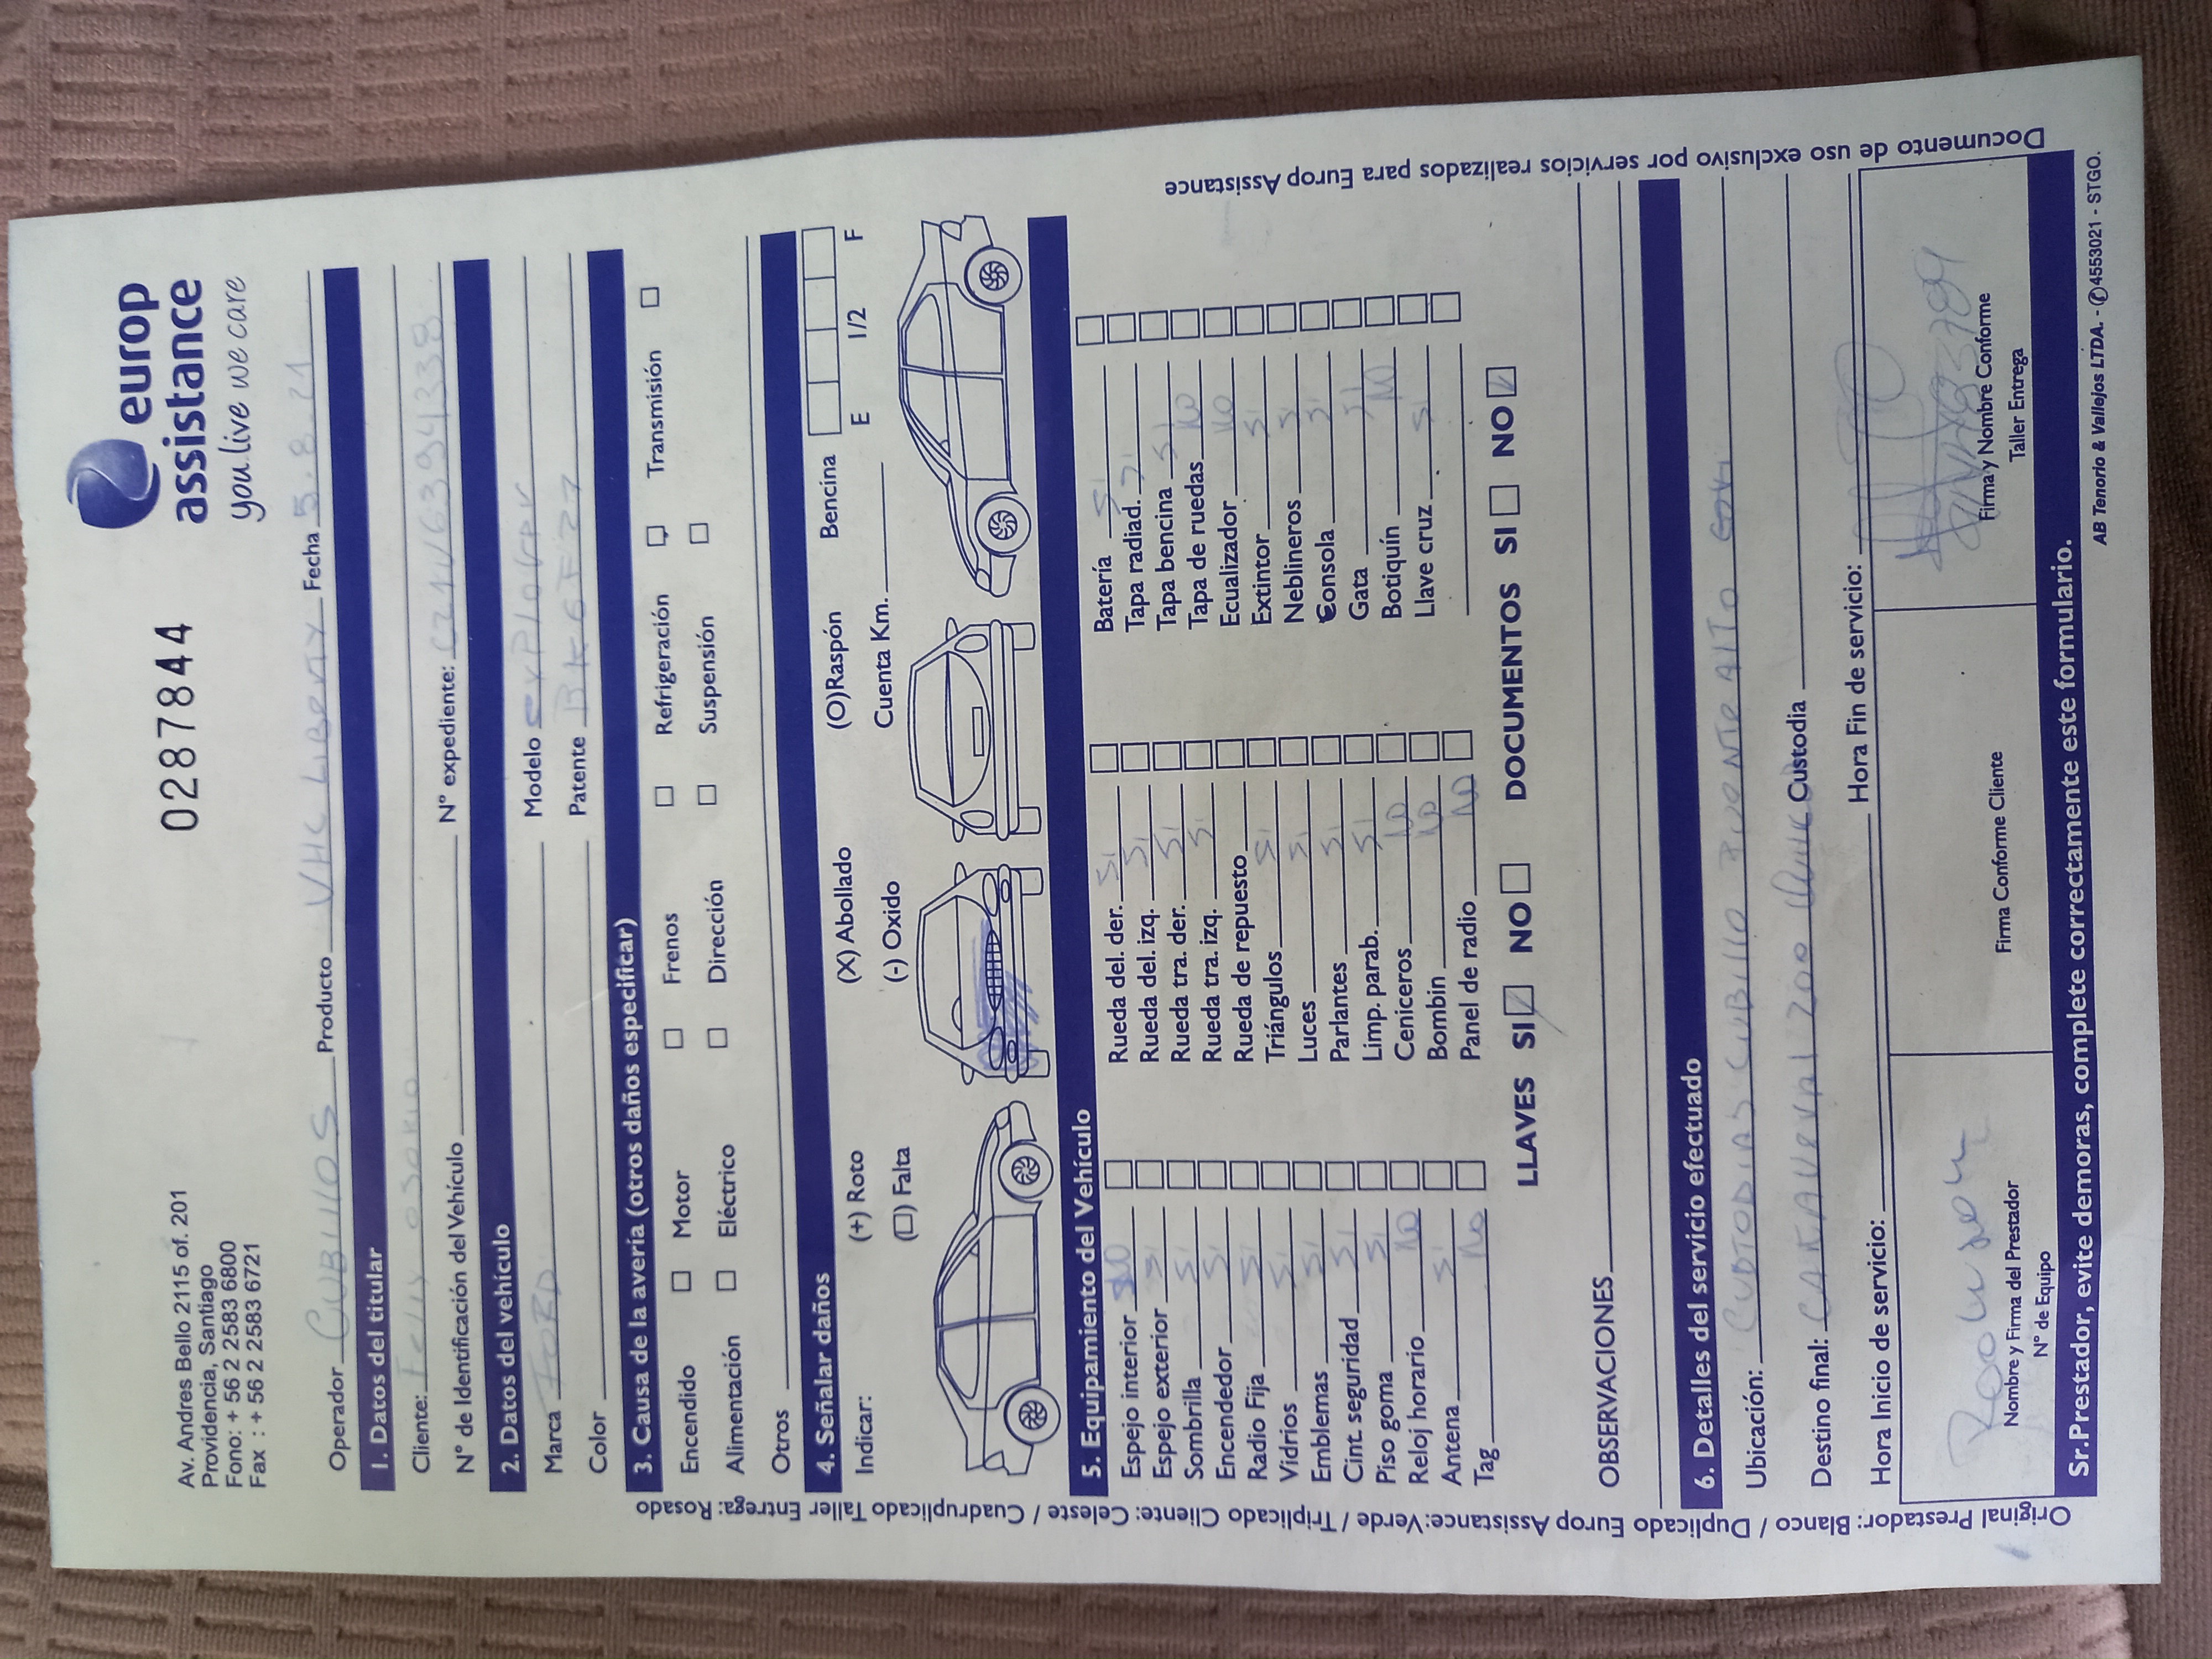 europ
assistance
you live we care
0287844
Av. Andres Bello 2115 of. 201
Providencia, Santiago
Fono: + 56 2 2583 6800
Fax : + 56 2 2583 6721
Operador CUBILLOS Producto VHC LIBERTY Fecha 5.8.21
1. Datos del titular
Cliente: Felix osorio
N° de Identificación del Vehículo N° expediente:
2. Datos del vehículo
Marca FORD Modelo EXPLORER
Color Patente
3. Causa de la avería (otros daños especificar)
Encendido Motor Frenos Refrigeración Transmisión
Alimentación Eléctrico Dirección Suspensión
Otros
4. Señalar daños
Indicar: (+) Roto (X) Abollado (O)Raspón Bencina E 1/2 F
(□) Falta (-) Oxido Cuenta Km.
5. Equipamiento del Vehículo
Espejo interior Rueda del. der. Si Batería Si
Espejo exterior Si Rueda del. izq. Si Tapa radiad. Si
Sombrilla Si Rueda tra. der. Si Tapa bencina Si
Encendedor Si Rueda tra. izq. Si Tapa de ruedas NO
Radio Fija Si Rueda de repuesto Ecualizador NO
Vidrios Si Triángulos Si Extintor Si
Emblemas Si Luces Si Neblineros Si
Cint. seguridad Si Parlantes Si Consola Si
Piso goma Si Limp. parab. Si Gata Si
Reloj horario No Ceniceros NO Botiquín NO
Antena Si Bombin NO Llave cruz Si
Tag No Panel de radio NO
LLAVES SI NO DOCUMENTOS SI NO
OBSERVACIONES
6. Detalles del servicio efectuado
Ubicación: CUSTODIAS CUBILLO PUENTE ALTO
Destino final: Custodia
Hora Inicio de servicio: Hora Fin de servicio:
Nombre y Firma del Prestador
N° de Equipo
Firma Conforme Cliente
Firma y Nombre Conforme
Taller Entrega
Sr.Prestador, evite demoras, complete correctamente este formulario.
AB Tenorio & Vallejos LTDA. - ✆4553021 - STGO.
Original Prestador: Blanco / Duplicado Europ Assistance:Verde / Triplicado Cliente: Celeste / Cuadruplicado Taller Entrega: Rosado
Documento de uso exclusivo por servicios realizados para Europ Assistance